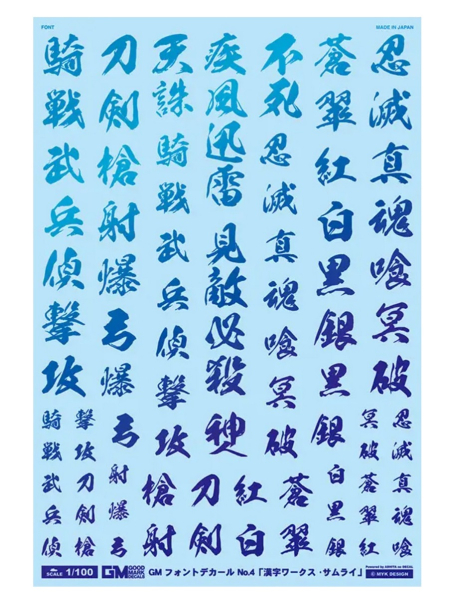 FONT
MADE IN JAPAN
騎戦武兵偵撃攻
刀剣槍射爆弓爆
天誅騎戦武兵偵撃攻
疾風迅雷見敵必殺神
不死忍滅真魂喰冥破
蒼翠紅白黒銀黒銀
忍滅真魂喰冥破
騎戦武兵偵
撃攻刀剣槍
弓射爆弓
槍刀紅蒼
射剣白翠
白黒銀
冥破蒼翠紅
忍滅真魂喰
SCALE 1/100
GM GOOD MARK DECALS
GM フォントデカール No.4「漢字ワークス・サムライ」
© MYK DESIGN